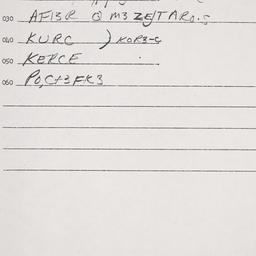 030 AF13R Q M3 ZE/TARO.S
040 KURC ) KOR3-G
050 KERCE
060 PO,C+3FK3